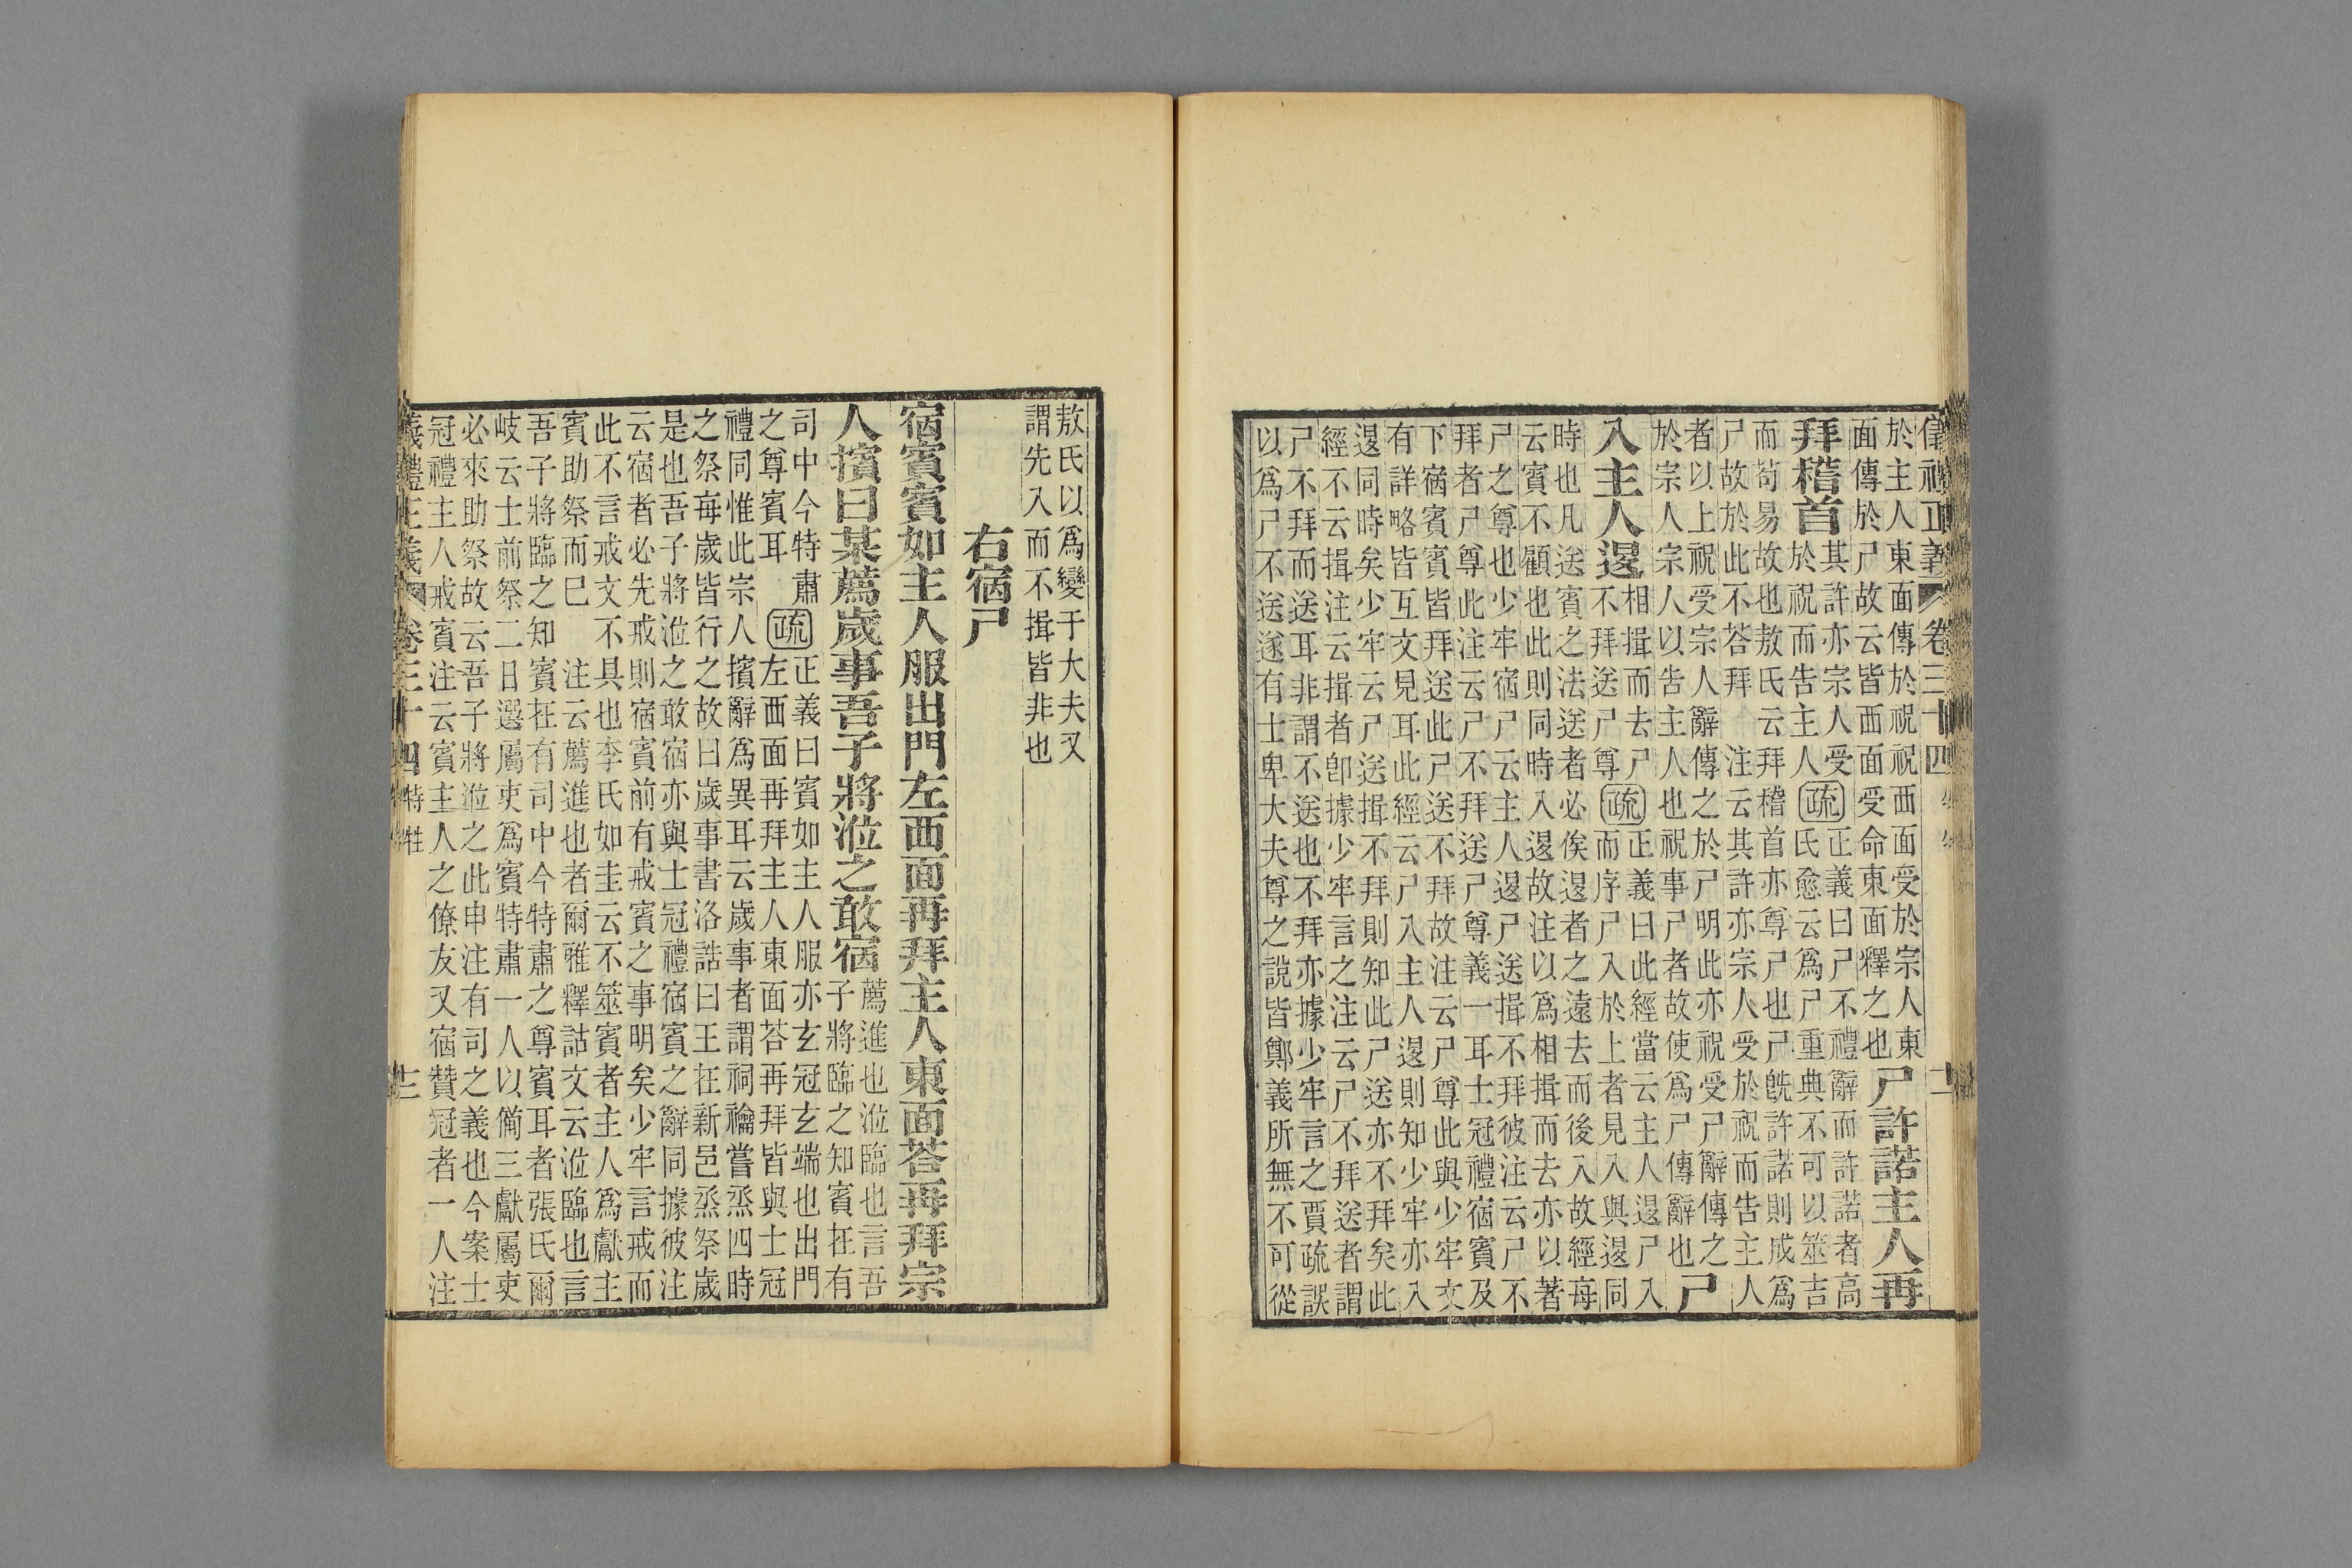 儀禮正義 卷三十四
於主人東面傳於祝祝西面受於宗人東
面傳於尸故云皆西面受命東面釋之也
尸許諾主人再
拜稽首
其許亦宗人受
於祝而告主人
疏
正義曰尸不禮辭而許諾者高
氏愈云爲尸重典不可以筮吉
而苟易故也敖氏云拜稽首亦尊尸也尸旣許諾則成爲
尸故於此不荅拜 注云其許亦宗人受於祝而告主人
者以上祝受宗人辭傳之於尸明此亦祝受尸辭傳之
於宗人宗人以告主人也祝事尸者故使爲尸傳辭也
尸
入主人退
相揖而去尸
不拜送尸尊
疏
正義曰此經當云主人退尸入
而序尸入於上者見入與退同
時也凡送賓之法送者必俟退者之遠去而後入故經每
云賓不顧也此則同時入退故注以爲相揖而去亦以著
尸之尊也少牢宿尸云主人退尸送揖不拜彼注云尸不
拜者尸尊此注云尸不拜送尸尊義一耳士冠禮宿賓及
下宿賓賓皆拜送此尸送不拜故注云尸尊此與少牢文
有詳略皆互文見耳此經云尸入主人退則知少牢亦入
退同時矣少牢云尸送揖不拜則知此尸送亦不拜矣此
經不云揖注云揖者卽據少牢言之注云尸不拜送者謂
尸不拜而送耳非謂不送也不拜亦據少牢言之賈疏誤
以爲尸不送遂有士卑大夫尊之說皆鄭義所無不可從
敖氏以爲變于大夫又
謂先入而不揖皆非也
右宿尸
宿賓賓如主人服出門左西面再拜主人東面荅再拜宗
人擯曰某薦歲事吾子將涖之敢宿
薦進也涖臨也言吾
子將臨之知賓在有
司中今特肅
之尊賓耳
疏
正義曰賓如主人服亦玄冠玄端也出門
左西面再拜主人東面荅再拜皆與士冠
禮同惟此宗人擯辭爲異耳云歲事者謂祠禴嘗烝四時
之祭每歲皆行之故曰歲事書洛誥曰王在新邑烝祭歲
是也吾子將涖之敢宿亦與士冠禮宿賓之辭同據彼注
云宿者必先戒則宿賓前有戒賓之事明矣少牢言戒而
此不言戒文不具也李氏如圭云不筮賓者主人爲獻主
賓助祭而已 注云薦進也者爾雅釋詁文云涖臨也言
吾子將臨之知賓在有司中今特肅之尊賓耳者張氏爾
岐云士前祭二日選屬吏爲賓特肅一人以備三獻屬吏
必來助祭故云吾子將涖之此申注有司之義也今案士
冠禮主人戒賓注云賓主人之僚友又宿贊冠者一人注
儀禮正義 卷三十四 特牲